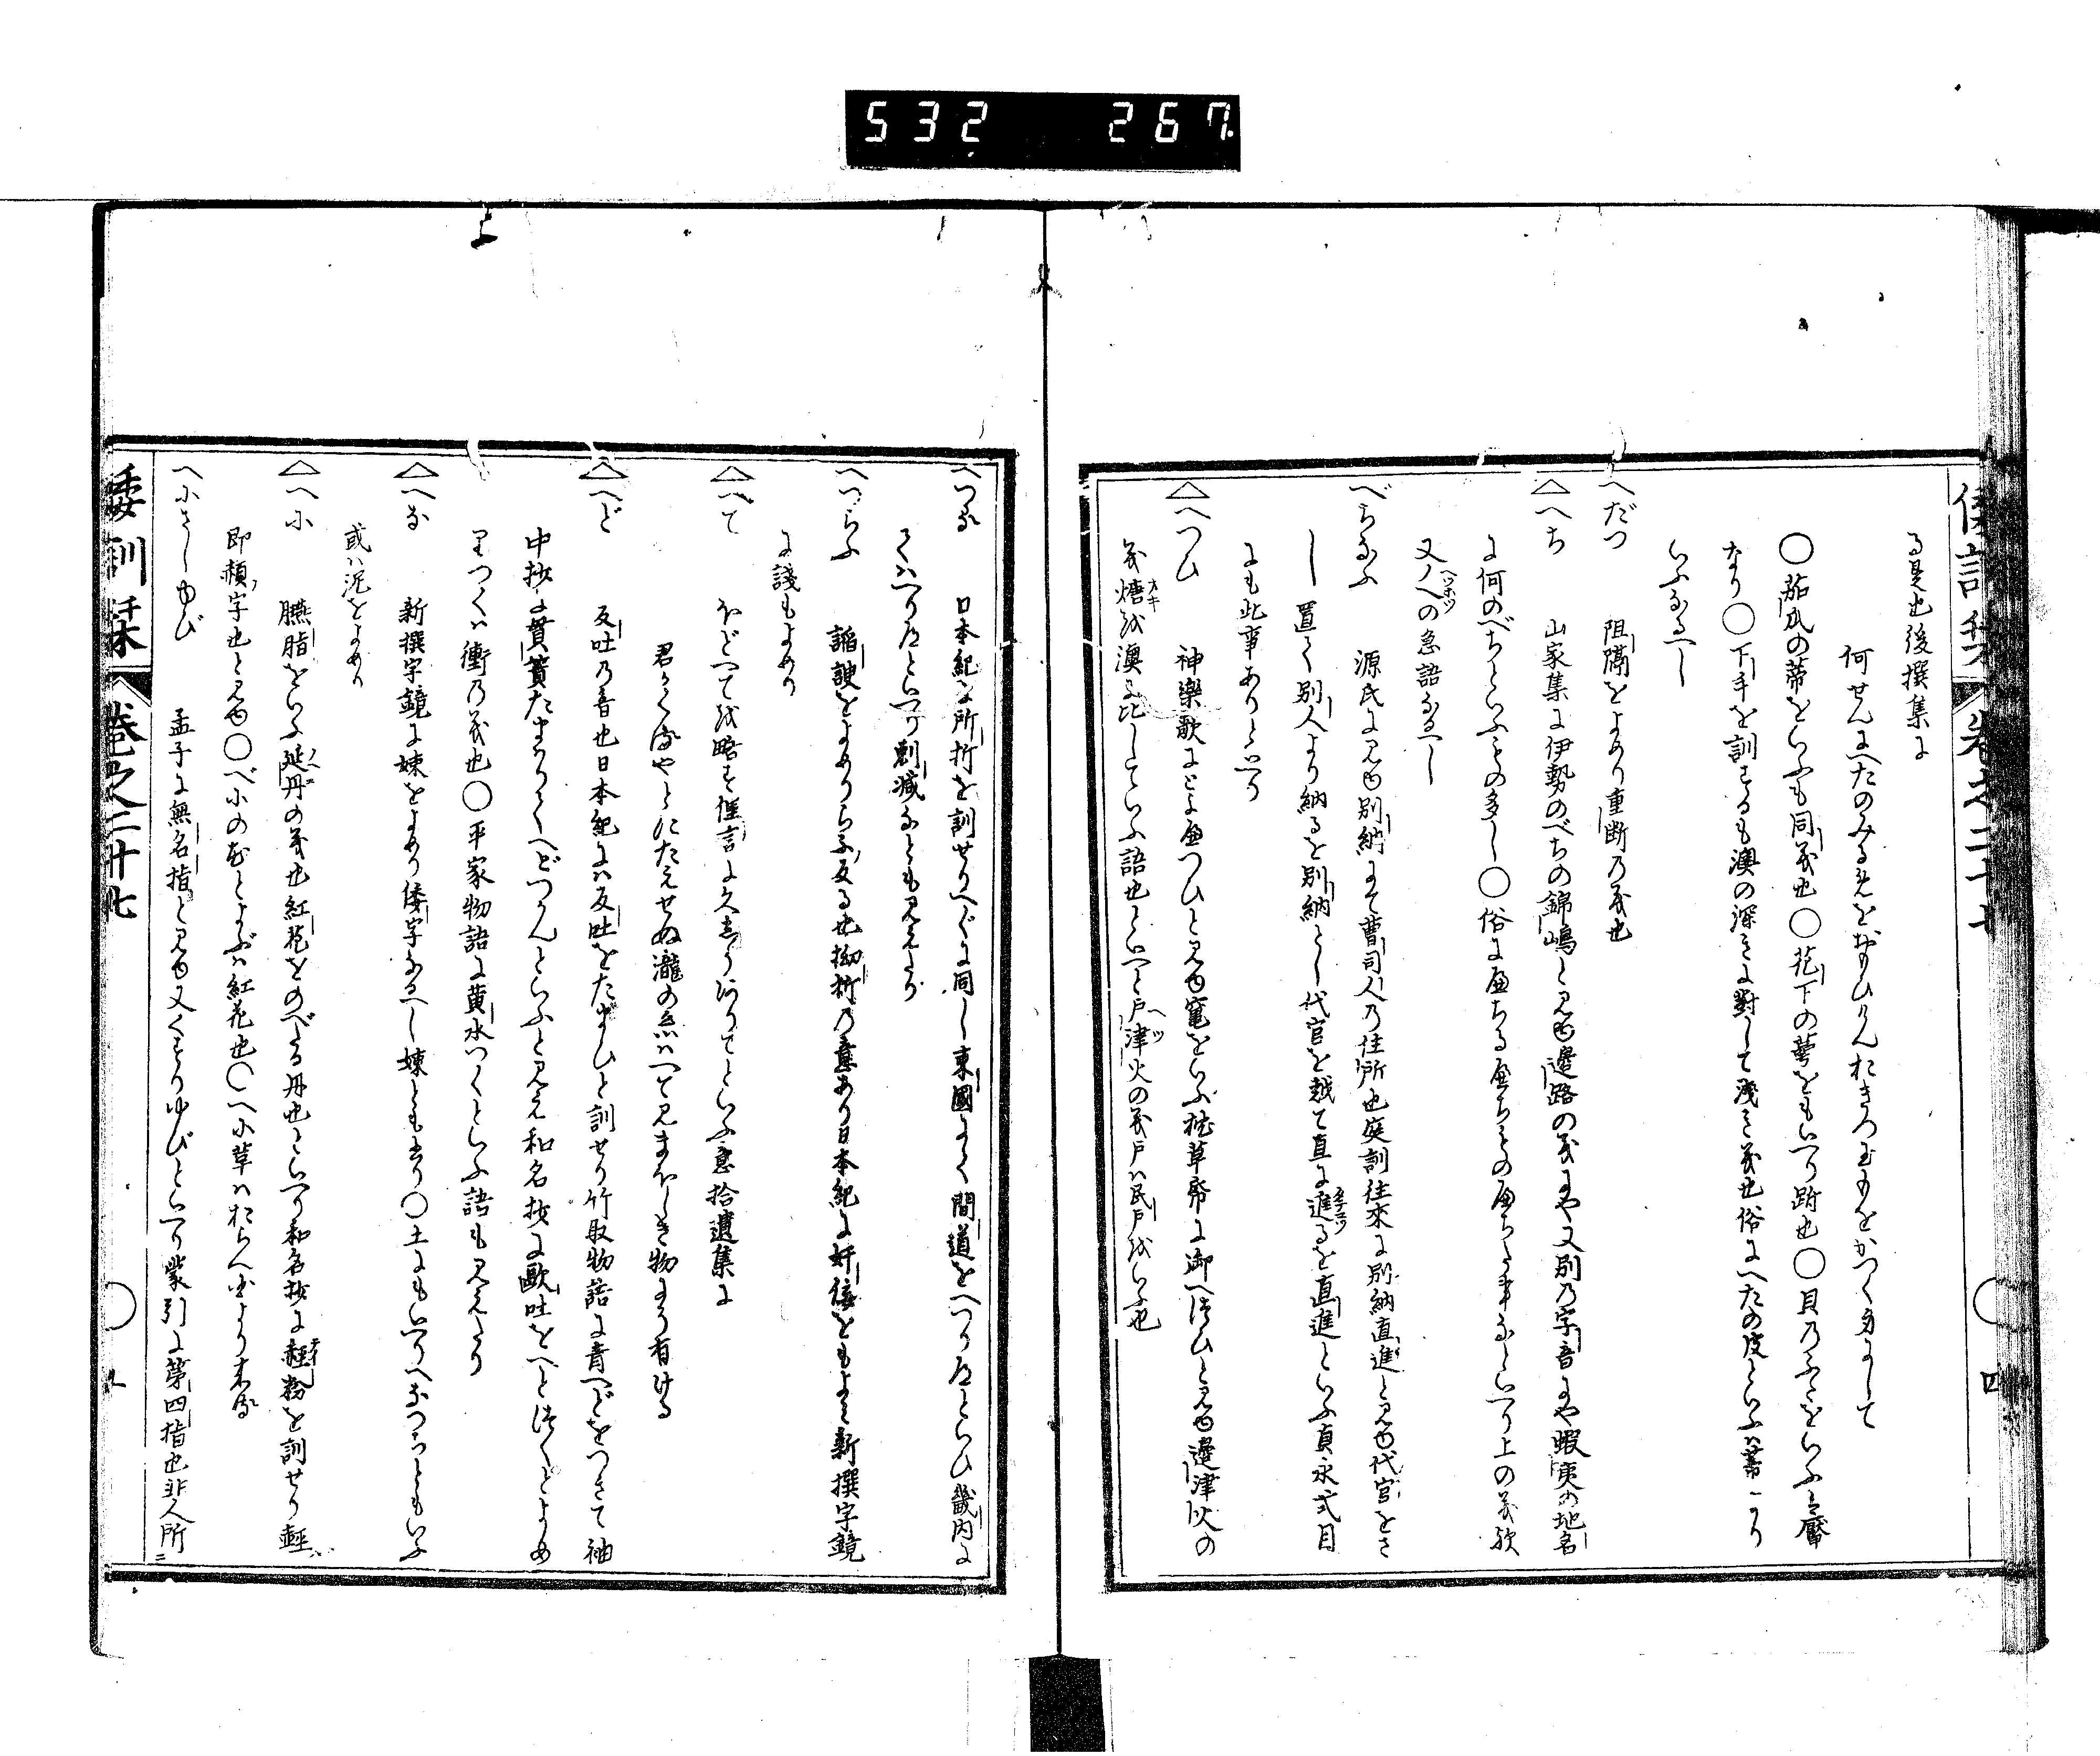 532 267
倭訓栞 巻之二十七 四
る是也後撰集に
何せんにへたのみるめをおもひけんおきつ玉もをかつく身にして
○茄瓜の蔕をいふも同義也○花下の萼をもいへり跗也○貝乃ふたをいふは厴
なり○下手を訓するも澳の深きに対して浅き義也俗にへたの皮といふハ蔕なり
いふなるへし
へだつ 阻隔をよめり重断乃義也
△へち 山家集に伊勢のべちの錦嶋と見ゆ邉路の義にや又別乃字音にや蝦夷の地名
に何のべちといふもの多し○俗にへちるへちものへちた事なといへり上の義歟
又ノヘヘツホツの急語なるへし
べちなふ 源氏に見ゆ別納にて曹司人乃住所也庭訓往来に別納直進と見ゆ代官をさ
し置て別人より納るを別納とし代官を越て直に進るを直進といふ貞永式目
にも此事ありといへり
△へつひ 神楽歌にとよへつひと見ゆ竈をいふ枕草帋に御へつひと見ゆ邉津火の
義燠オキを澳に比していふ語也といへと戸津ヘツ火の義戸ハ民戸をいふ也
へつる 日本紀に所折を訓せりへぐに同し東國にて間道をへつり道といひ畿内に
てハへり道といへり剌減なとも見えたり
へつらふ 謟諛をよめりらふ反る也拗折乃意あり日本紀に奸佞をもよみ新撰字鏡
に諓もよめり
△へて ほどへてを略す俚言に久しうありてといふ意拾遺集に
君かくはやとにたえせぬ瀧の糸ハへて見まほしき物にそ有ける
△へど 反吐乃音也日本紀にハ反吐をたまひと訓せり竹取物語に青へどをつきて袖
中抄に貲簣たまりてへどつかんといふと見え和名抄に歐吐をへとつくとよめ
りつくハ衝乃義也○平家物語に黄水つくといふ語も見えたり
△へな 新撰字鏡に埬をよめり倭字なるへし埬ともせり○土にもいへりへなつちともいふ
或ハ泥をよめり
△へに 臙脂をいふ延丹のへにの義也紅花をのべたる丹也といへり和名抄に䞓粉を訓せり䞓
即赬字也と見ゆ○べにの花とよぶハ紅花也○へに草ハおらん田より来る
へにさしゆび 孟子に無名指と見ゆ又くすりゆびといへり蒙引に第四指也非人所
倭訓栞 巻之二十七